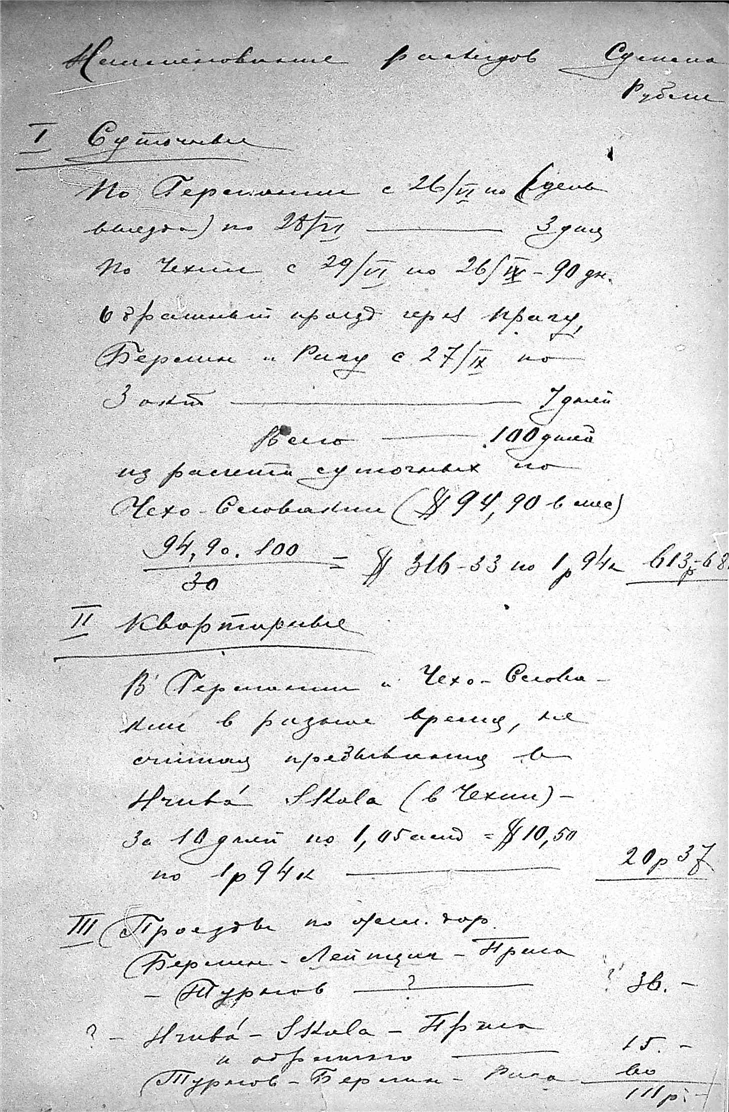 Наименование расходов Сделано
Рубли
I Суточные
По Германии с 26/VI по (день
выезда) по 28/VI — 3 дня
По Чехии с 29/VI по 26/IX – 90 дн.
обратный проезд через Прагу,
Берлин и Ригу с 27/IX по
3 окт — 7 дней
Всего — 100 дней
из расчета суточных по
Чехо-Словакии ($94,90 в мес)
94,90.100 / 30 = $ 316-33 по 1р 94к 613р-68
II Квартирные
В Германии и Чехо-Слова-
кии в разное время, не
считая пребывания в
Hrubá Skala (в Чехии) –
за 10 дней по 1,05 = $10,50
по 1р 94к — 20р 37
III Проезды по жел. дор.
Берлин-Лейпциг-Прага
– Турнов — ? ? 36.-
? – Hrubá-Skala-Прага
и обратно — 15.-
Турнов-Берлин-Рига 60
111р.-